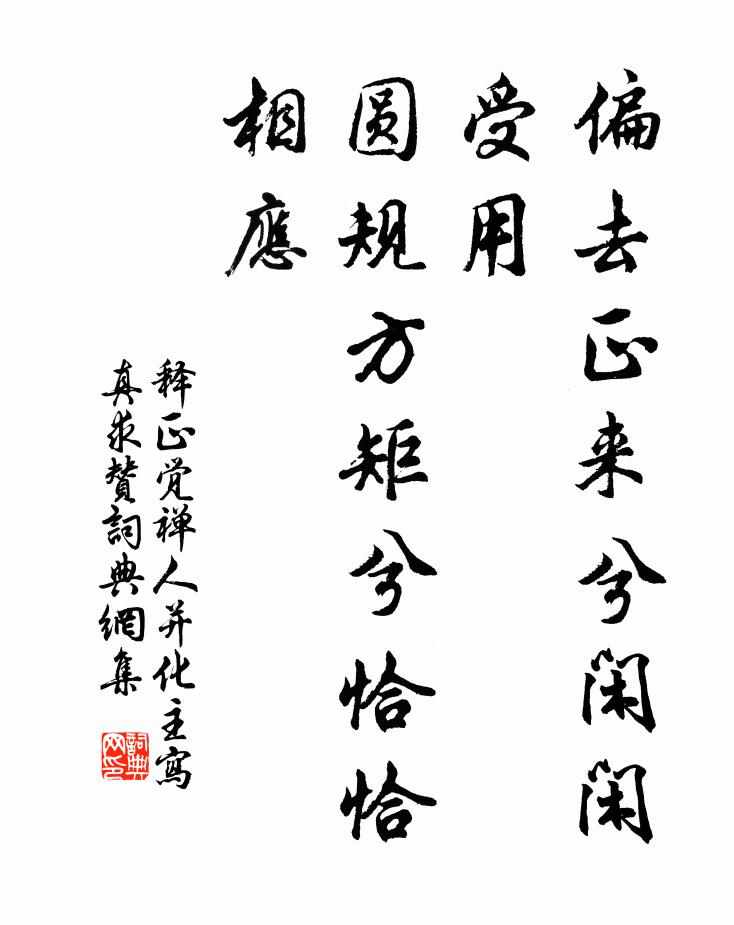 偏去正来兮闲闲
受用
圆规方矩兮恰恰
相應
释正觉禅人并化主寫
真求赞詞典網集
詞典
网印